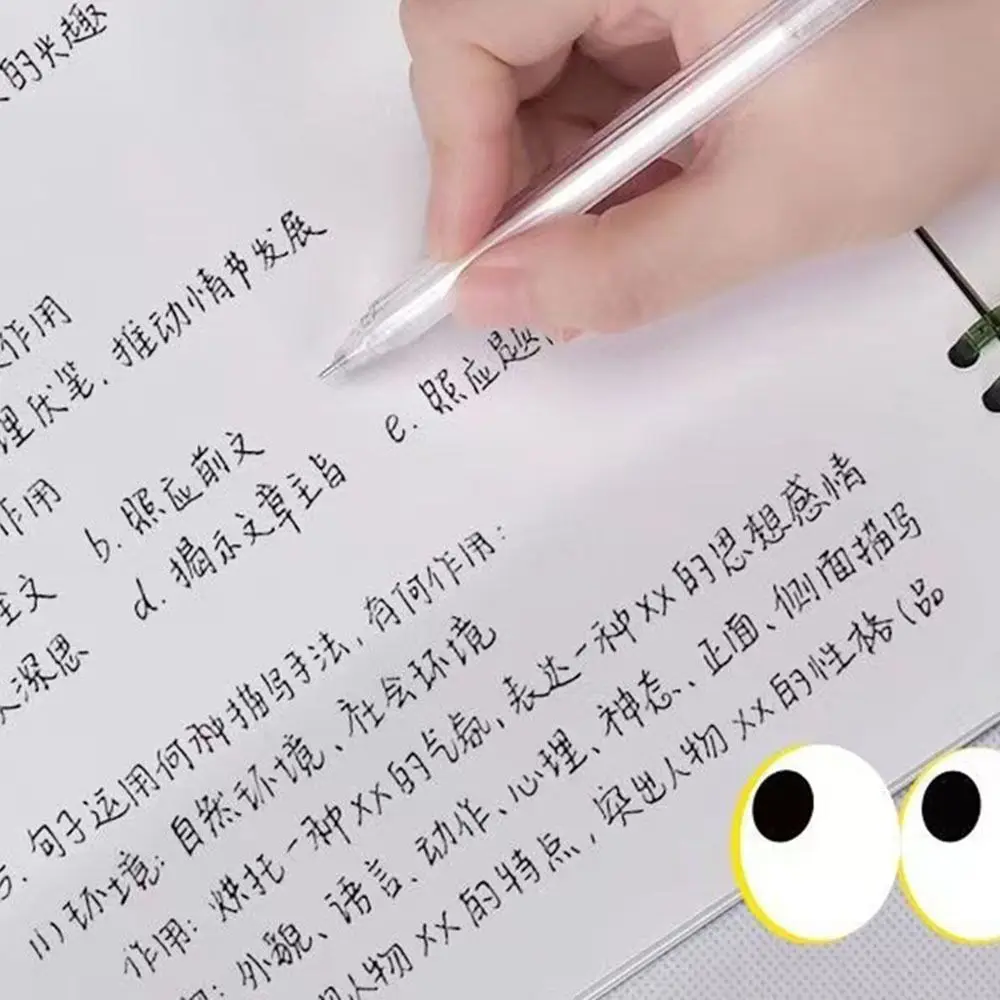 的兴趣
作用
埋伏笔,推动情节发展
作用
全文 b. 照应前文
深思 d. 揭示文章主旨 e. 照应题
5. 句子运用何种描写手法,有何作用:
(1) 环境: 自然环境、社会环境
作用: 烘托一种XX的气氛,表达一种XX的思想感情
外貌、语言、动作、心理、神态、正面、侧面描写
人物XX的特点,突出人物XX的性格(品